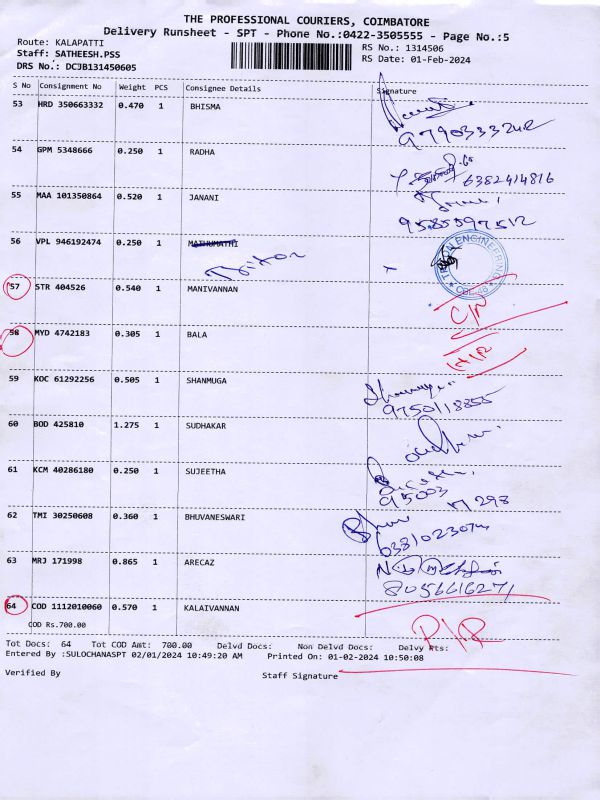 THE PROFESSIONAL COURIERS, COIMBATORE
Delivery Runsheet - SPT - Phone No.:0422-3505555 - Page No.:5
Route: KALAPATTI
RS No.: 1314506
Staff: SATHEESH.PSS
RS Date: 01-Feb-2024
DRS No.: DCJB131450605
S No Consignment No Weight PCS Consignee Details Signature
53 HRD 350663332 0.470 1 BHISMA
54 GPM 5348666 0.250 1 RADHA
6382414816
55 MAA 101350864 0.520 1 JANANI
9585597512
56 VPL 946192474 0.250 1 MATHUMATHI
ENGINEERING
57 STR 404526 0.540 1 MANIVANNAN
58 MYD 4742183 0.305 1 BALA
59 KOC 61292256 0.505 1 SHANMUGA
9750118855
60 BOD 425810 1.275 1 SUDHAKAR
61 KCM 40286180 0.250 1 SUJEETHA
95003
17298
62 TMI 30250608 0.360 1 BHUVANESWARI
63 MRJ 171998 0.865 1 ARECAZ
8056616271
64 COD 1112010060 0.570 1 KALAIVANNAN
COD Rs.700.00
Tot Docs: 64 Tot COD Amt: 700.00 Delvd Docs: Non Delvd Docs: Delvy Rts:
Entered By :SULOCHANASPT 02/01/2024 10:49:20 AM Printed On: 01-02-2024 10:50:08
Verified By Staff Signature